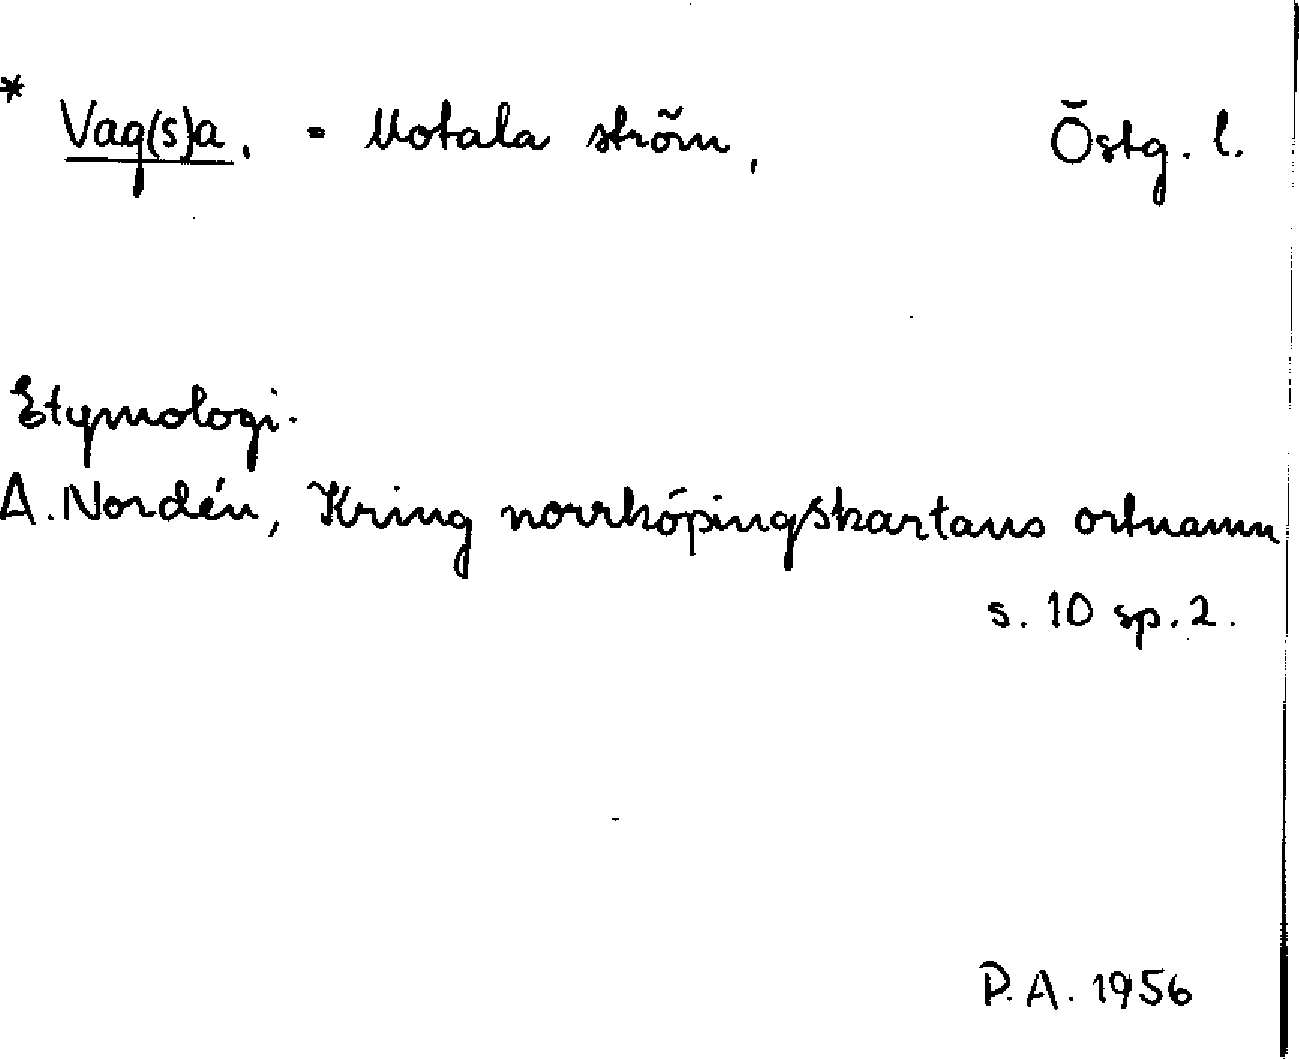 * Vag(s)a. = Motala ström, Östg. l.
Etymologi.
A. Nordén, Kring norrköpingskartans ortnamn
s. 10 sp. 2.
P.A. 1956